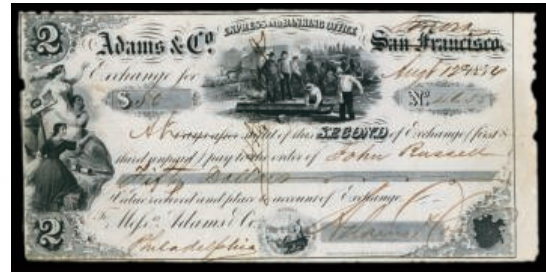 Sonora
2 Adams & Co. EXPRESS AND BANKING OFFICE San Francisco,
Exchange for Augt 12th 1854
$50 No.
At sight of this SECOND of Exchange (first &
third unpaid) pay to the order of John Russell
Fifty Dollars
Value received and place to account of Exchange.
To Messrs. Adams & Co. Adams & Co
2 Philadelphia